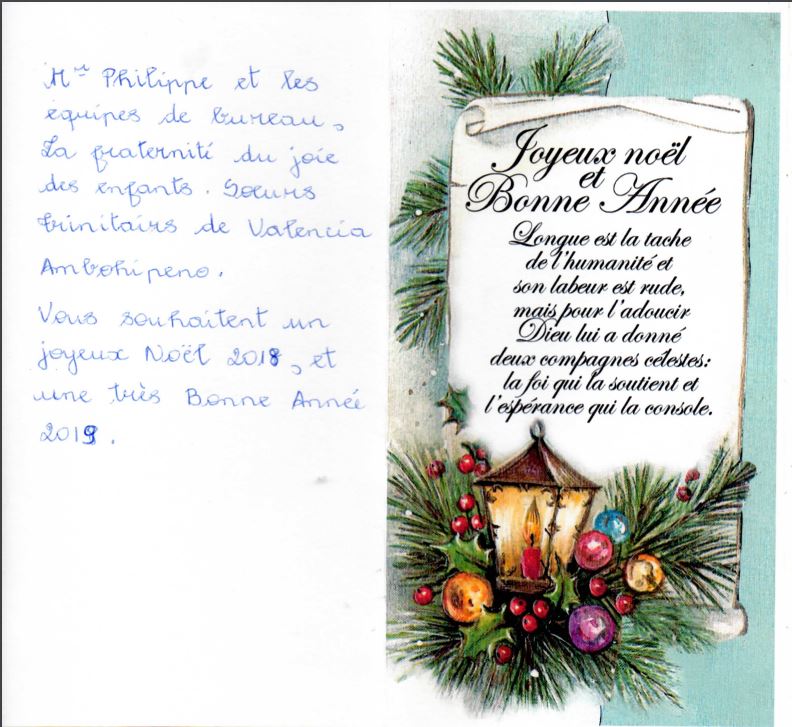 Mr Philippe et les
équipes de bureau,
La fraternité du joie
des enfants. Sœurs
trinitairs de Valencia
Ambohipeno.
Vous souhaitent un
joyeux Noël 2018, et
une très Bonne Année
2019.
Joyeux noël
et
Bonne Année
Longue est la tache
de l'humanité et
son labeur est rude,
mais pour l'adoucir
Dieu lui a donné
deux compagnes célestes:
la foi qui la soutient et
l'espérance qui la console.